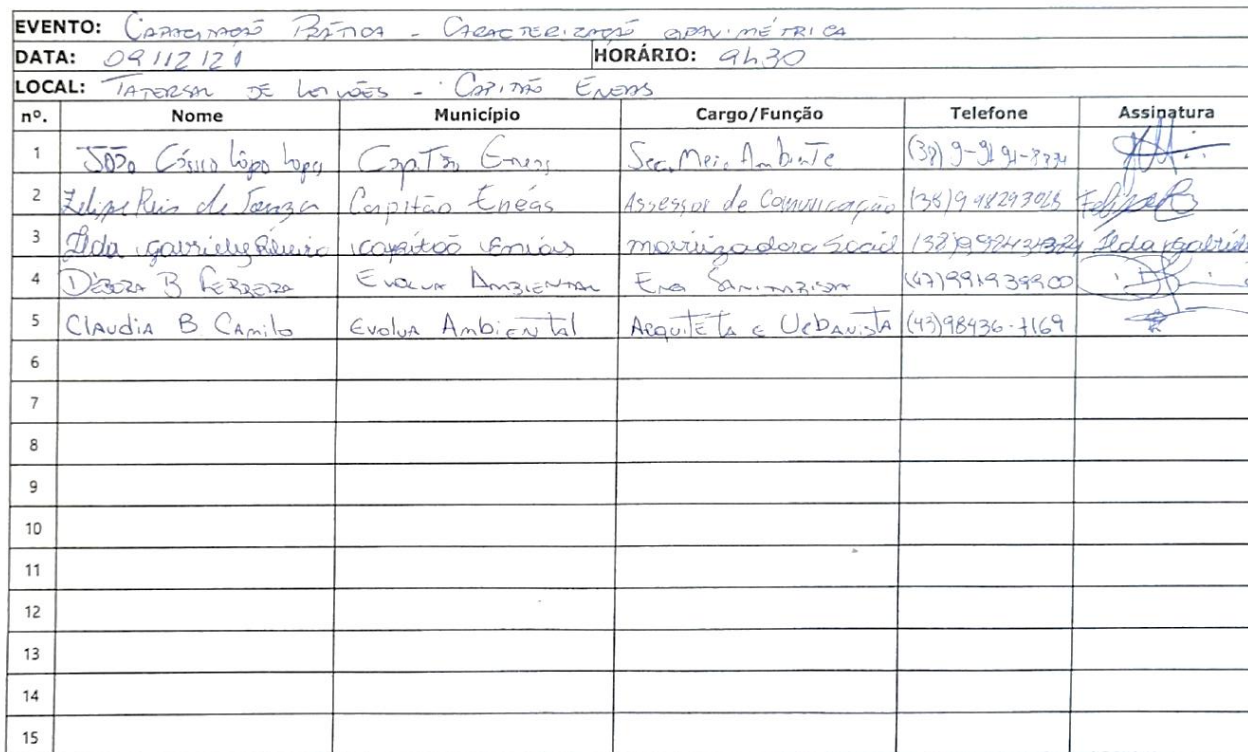 EVENTO: CAPACITAÇÃO PRÁTICA - CARACTERIZAÇÃO GRAVIMÉTRICA
DATA: 09/12/21 HORÁRIO: 9h30
LOCAL: TATERSAL DE LEILÕES - CAPITÃO ENÉAS
nº. Nome Município Cargo/Função Telefone Assinatura
1 João Cássio Lopes Capitão Enéas Sec. Meio Ambiente
2 Felipe Reis de Souza Capitão Enéas Assessor de Comunicação Felipe
3 Ilda Gabriely Capitão Enéas Social Ilda Gabriely
4 DÉBORA B FERREIRA EVOLUA AMBIENTAL ENG SANITARISTA
5 Claudia B Camilo Evolua Ambiental Arquiteta e Urbanista (43)98436-7169
6
7
8
9
10
11
12
13
14
15